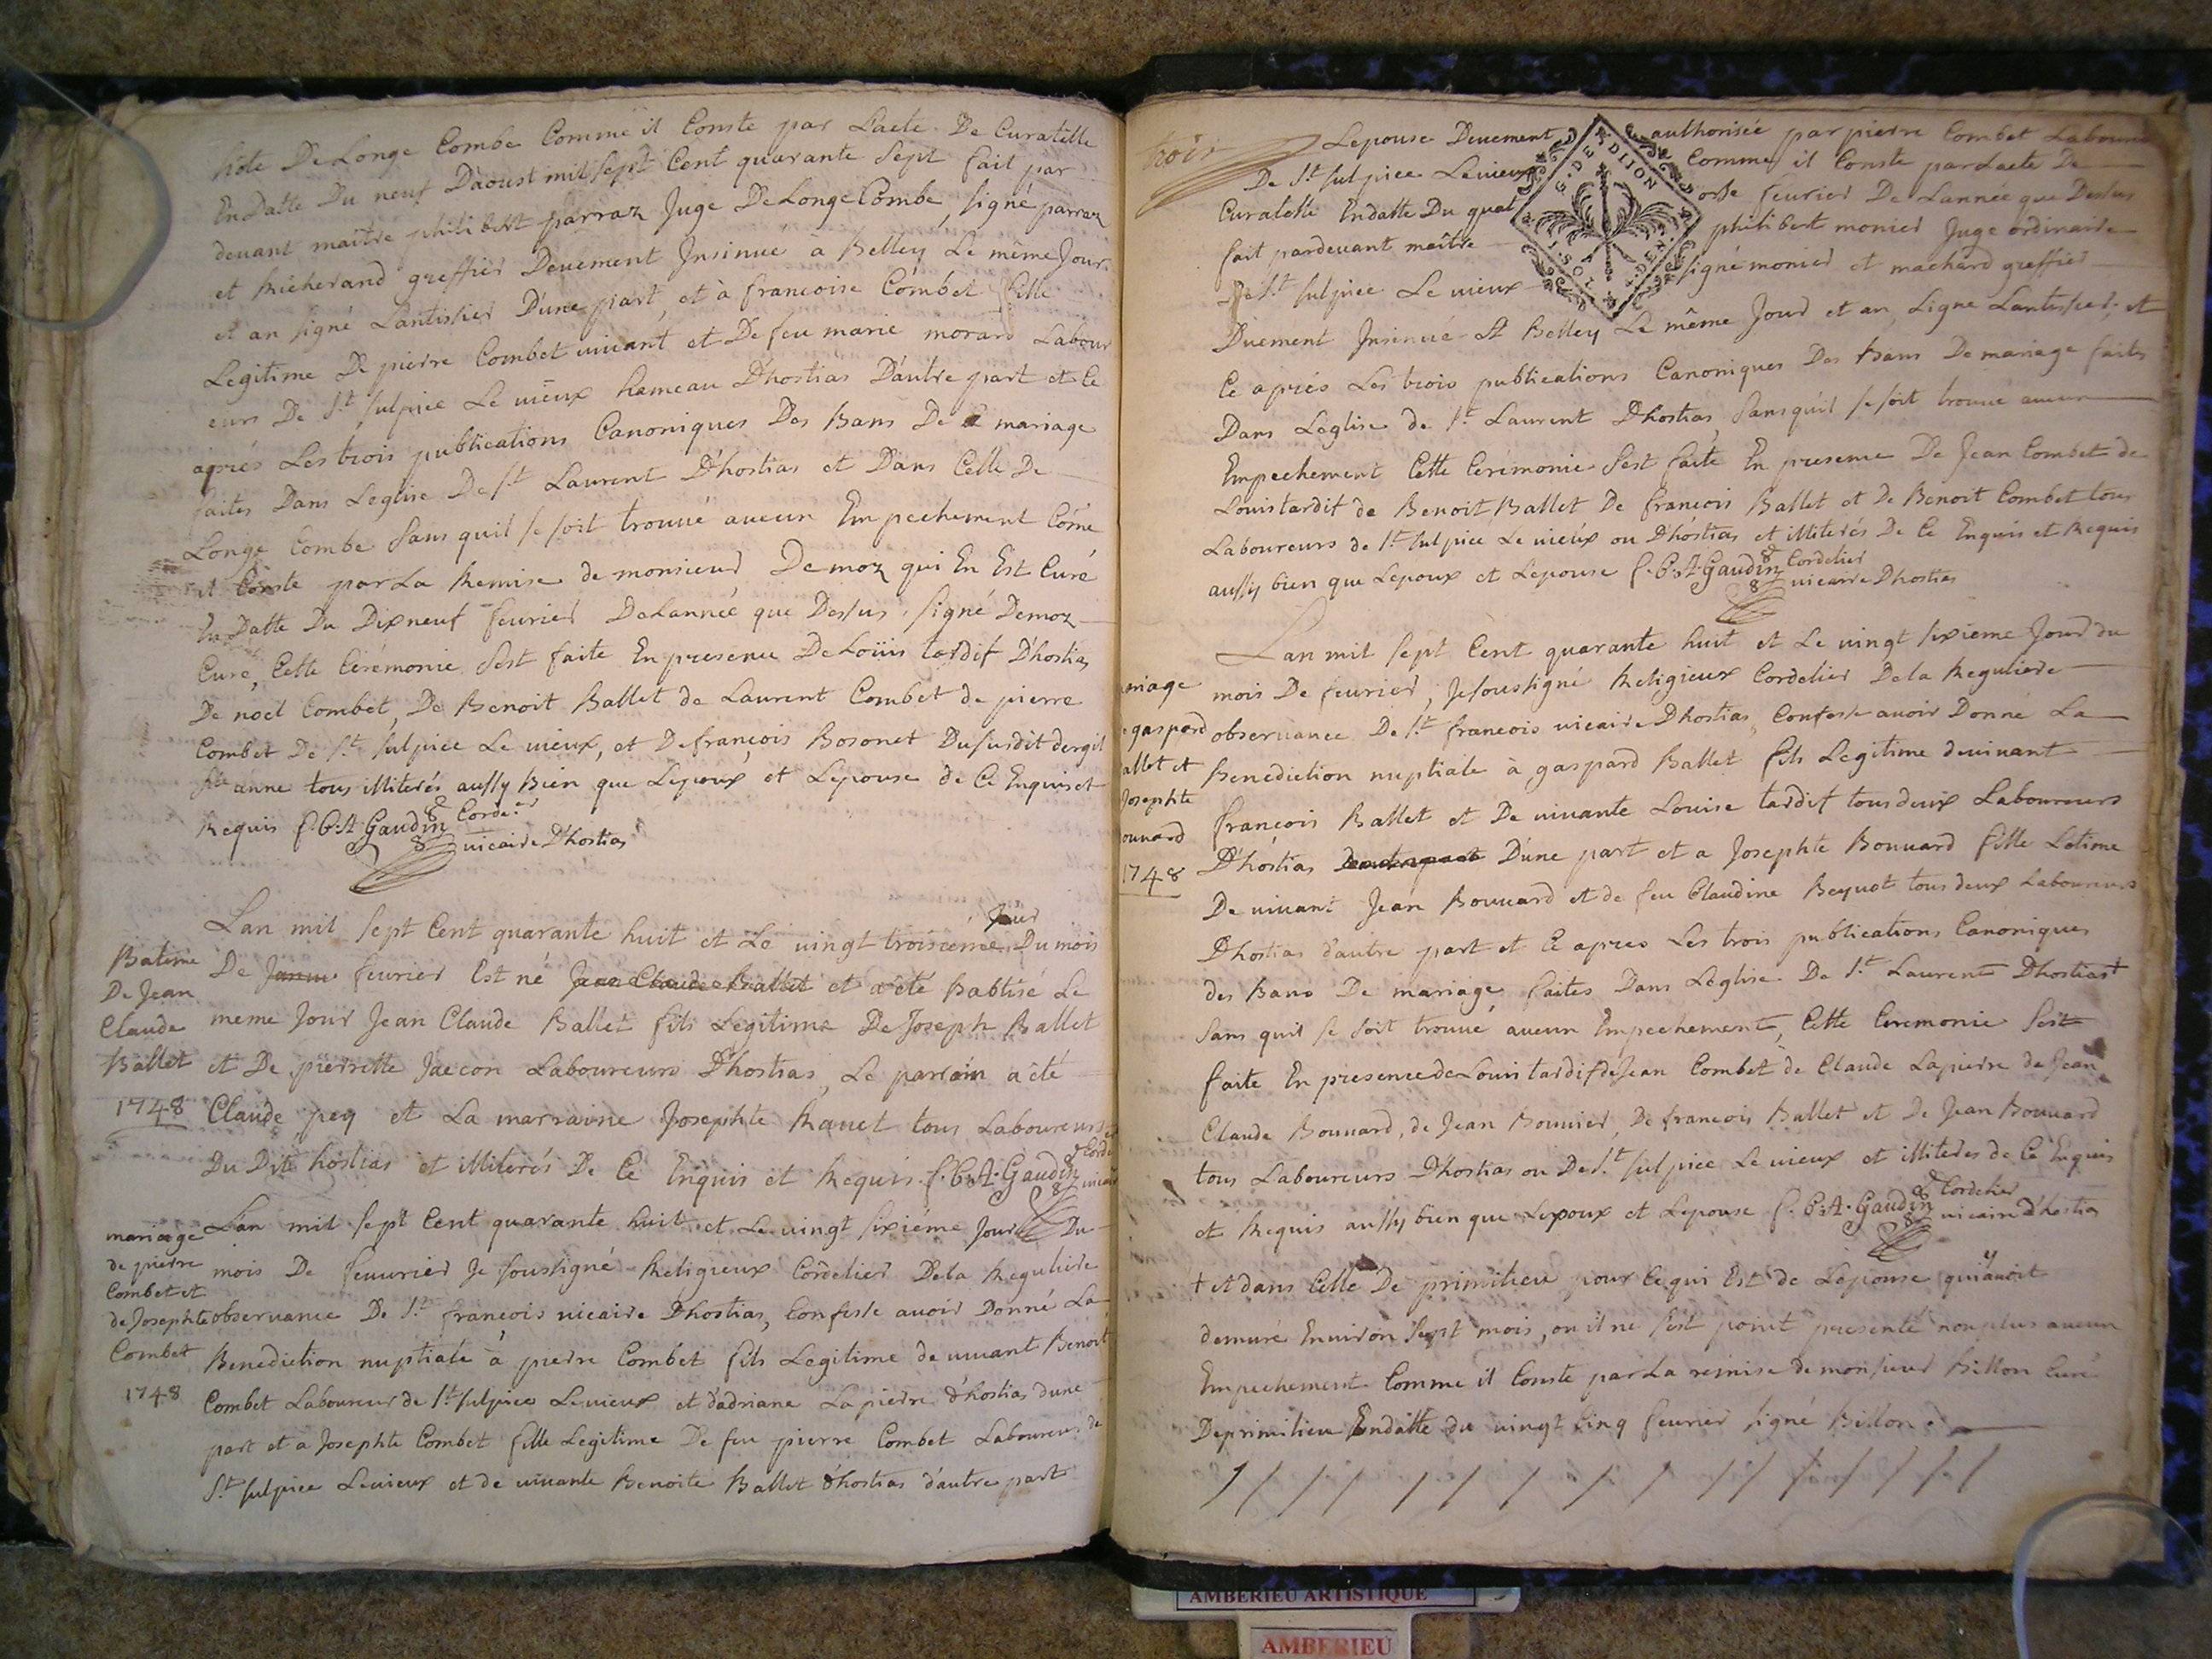 hôte De Longe Combe Comme il Conste par Lacte De Curatelle
En Datte Du neuf Daoust mil sept Cent quarante Sept fait par
devant maître philibert parraz Juge De Longe Combe, signé parraz
et Richerand greffier Deuement Insinué a Belley Le même Jour
et an signé Lantissier D'une part, et à francoise Combet fille
Legitime De pierre Combet vivant et De feu marie morard Labour
eurs De St. sulpice Le vieux hameau D'hostias D'autre part et Ce
aprés Les trois publications Canoniques Des Bans De mariage
faites Dans Leglise De St. Laurent D'hostias et Dans Celle De
Longe Combe Sans quil se soit trouvé aucun Empechement Come
il Conste par La Remise de monsieur Demoz qui En Est Curé
En Datte Du Dixneuf feurier De Lannée que Dessus, signé Demoz
Curé, Cette Cérémonie Sest faite En presence De Loüis tardif D'hostias
De noel Combet, De Benoit Ballet de Laurent Combet de pierre
Combet De St. sulpice Le vieux, et De françois Bosonet Dususdit
Ste anne tous illiterés aussy Bien que Lepoux et Lepouse de Ce Enquis et
Requis f. C. A. Gaudin Corder
vicaire D'hostias
Lan mil sept Cent quarante huit et Le vingt troisiéme Jour Du mois
Batême
De Jean
Claude
Ballet
1748
De feurier Est né Jean Claude Ballet et a été Babtisé Le
meme Jour Jean Claude Ballet fils Legitime De Joseph Ballet
et De pierrette Jaccon Laboureurs D'hostias, Le parrain a été
Claude pey et La marraine Josephte Ravet tous Laboureurs
Du Dit hostias et illiterés De Ce Enquis et Requis f. C. A. Gaudin Corde
vicai
mariage
de pierre
Combet et
de Josephte
Combet
1748
Lan mil sept Cent quarante huit et Le vingt sixiéme Jour Du
mois De feuurier Je soussigné Religieux Cordelier Dela Reguliere
observance De St. francois vicaire D'hostias, Confesse avoir Donné La
Benediction nuptiale à pierre Combet fils Legitime de vivant Benoit
Combet Laboureur de St. sulpice Le vieux et d'adriane Lapierre d'hostias dune
part et a Josephte Combet fille Legitime De feu pierre Combet Laboureur de
St. sulpice Le vieux et de vivante Benoite Ballet d'hostias d'autre part
trois
Lepouse Deuement authorisée par pierre Combet Laboure
De St. sulpice Le vieux Comme il Conste par Lacte De
Curatelle Endatte Du quat orse feurier De Lannée que Dessus
fait pardevant maître philibert monier Juge ordinaire
De St. sulpice Le vieux signé monier et machard greffier
G. DE DIJON
Duement Insinué A Belley Le même Jour et an, signe Lantissier, et
Ce aprés Les trois publications Canoniques Des Bans De mariage faites
Dans Léglise de St. Laurent D'hostias, Sans quil se soit trouvé aucun
Empechement Cette Cerémonie Sest faite En presence De Jean Combet de
Louis tardif de Benoit Ballet De francois Ballet et de Benoit Combet tous
Laboureurs de St. sulpice Le vieux ou D'hostias et illiterés De Ce Enquis et Requis
aussy bien que Lepoux et Lepouse f. C. A. Gaudin Cordelier
vicaire D'hostias
Lan mil sept Cent quarante huit et Le vingt sixieme Jour du
mois De feurier, Je soussigné Religieux Cordelier De la Reguliere
ariage
gaspard
allet et
Josephte
ouvard
1748
observance De St. francois vicaire D'hostias, Confesse avoir Donné La
Benediction nuptiale à gaspard Ballet fils Legitime de vivant
françois Ballet et De vivante Louise tardif tous deux Laboureurs
D'hostias D'autre part D'une part et a Josephte Bouvard fille Letime
De vivant Jean Bouvard et de feu Claudine Beynot tous deux Laboureurs
D'hostias d'autre part et Ce apres Les trois publications Canoniques
des Bans De mariage, faites Dans Léglise De St. Laurent D'hostias †
Sans quil se soit trouvé aucun Empechement, Cette Ceremonie Sest
faite En presence de Louis tardif de Jean Combet de Claude Lapierre de Jean
Claude Bouvard, de Jean Bouvier, De francois Ballet et De Jean Bouvard
tous Laboureurs D'hostias ou De St. sulpice Le vieux et illiterés de Ce Enquis
et Requis aussy bien que Lepoux et Lepouse f. C. A. Gaudin Cordelier
vicaire D'hostias
† et dans Celle De primilieu pour Ce qui Est de Lépouse qui y avoit
demuré Environ Sept mois, ou il ne sest point presenté non plus aucun
Empechement Comme il Conste par La remise de monsieur Billon Curé
De primilieu Endatte du vingt Cinq feurier signé Billon
AMBERIEU ARTISTIQUE
AMBERIEU